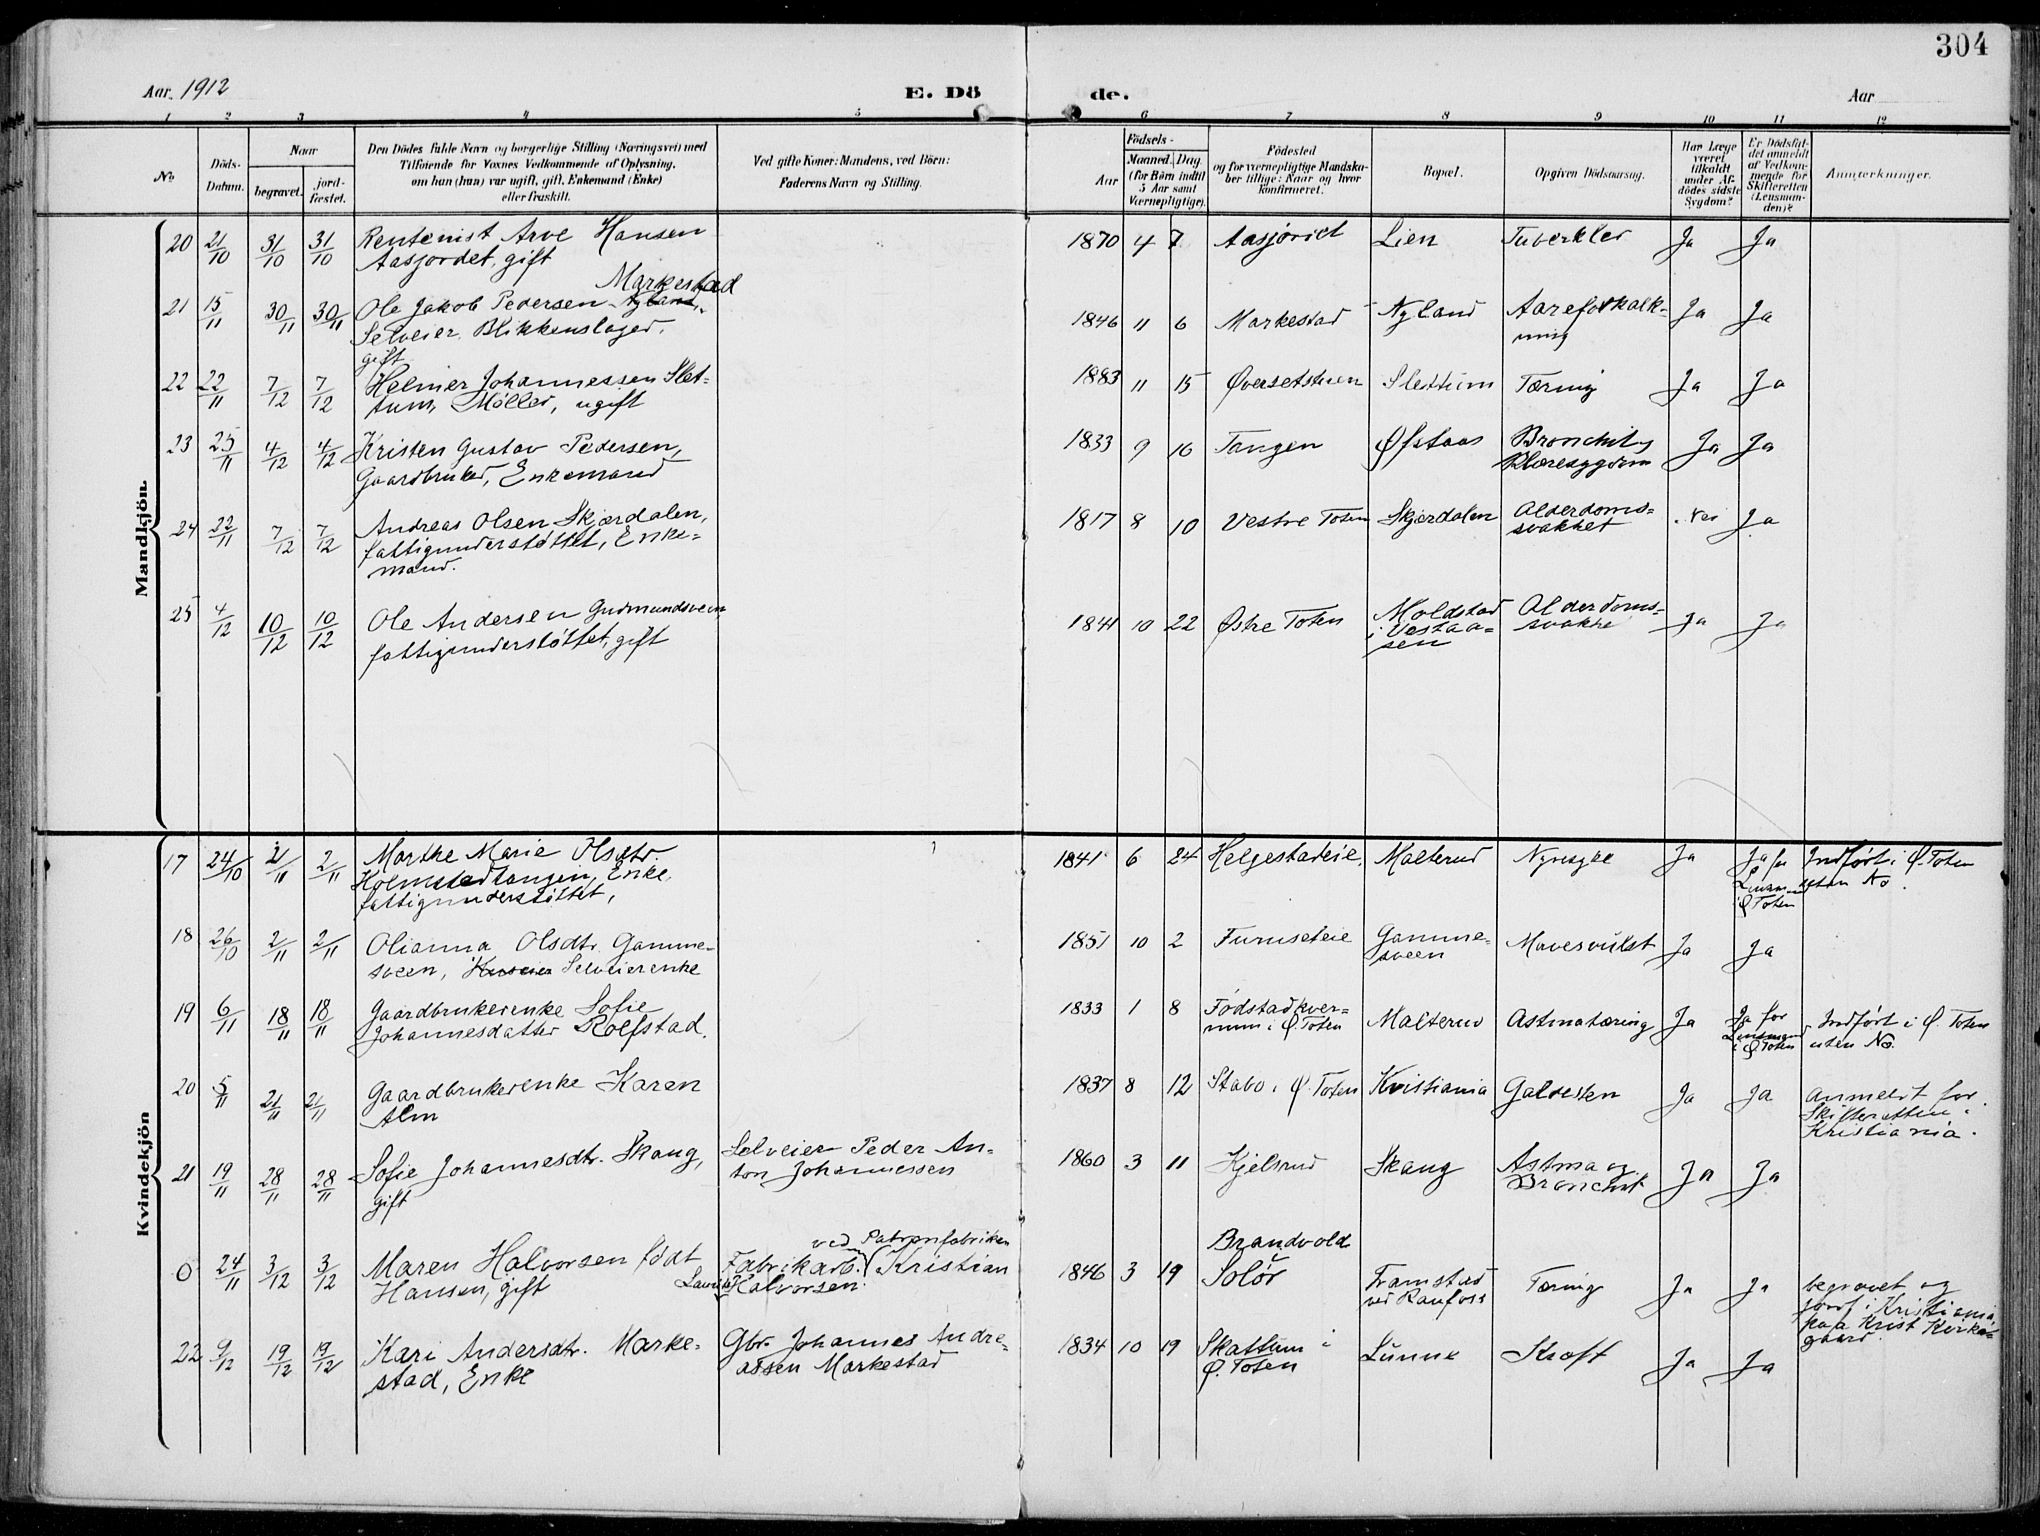 304
Aar 1912
E. Dö
de.
Aar
1 2 3 4 5 6 7 8 9 10 11 12
No
Döds-Datum.
Naar
begravet.
jord-fæstet.
Den Dödes fulde Navn og borgerlige Stilling (Næringsvei) med
Tilföiende for Voxnes Vedkommende af Oplysning,
om han (hun) var ugift, gift, Enkemand (Enke)
eller fraskilt.
Ved gifte Koner: Mandens, ved Börn:
Faderens Navn og Stilling.
Aar
Födsels-
Maaned. Dag
(for Börn indtil
5 Aar samt
Værnepligtige).
Födested
og for værnepligtige Mandska-
ber tillige: Naar og hvor
konfirmeret.
Bopæl.
Opgiven Dödsaarsag.
Har Læge
været
tilkaldt
under Af-
dödes sidste
Sygdom?
Er Dödsfal-
det anmeldt
af Vedkom-
mende for
Skifteretten
(Lensman-
den)?
Anmærkninger.
Mandkjön.
20 21/10 31/10 31/10 Rentenist Arve Hansen
Aasjordet, gift
1870 4 7 Aasjordet Lien Tuberkler Ja Ja
Markestad
21 15/11 30/11 30/11 Ole Jakob Pedersen Nyland,
Selveier, Blikkenslager,
gift
1846 11 6 Markestad Nyland Aareforkalk-
ning Ja Ja
22 22/11 7/12 7/12 Helmer Johannessen Slet-
tum, Møller, ugift
1883 11 15 Øversetstuen Slettum Tæring Ja Ja
23 25/11 4/12 4/12 Kristen Gustav Pedersen,
Gaardbruker, Enkemand
1833 9 16 Tangen Øfstaas Bronchit og
Blæresygdom Ja Ja
24 22/11 7/12 7/12 Andreas Olsen Skjærdalen,
fattigunderstøttet, Enke-
mand.
1817 8 10 Vestre Toten Skjærdalen Alderdoms-
svakhet Nei Ja
25 4/12 10/12 10/12 Ole Andersen Gudmundsveen
fattigunderstøttet, gift
1841 10 22 Østre Toten Moldstad
i Vestaa-
sen Alderdoms-
svakhe Ja Ja
Kvindekjön
17 24/10 2/11 2/11 Marthe Marie Olsdtr.
Holmstadtangen, Enke,
fattigunderstøttet,
1841 6 24 Helgestadeie, Malterud Nyresyke Ja Ja for
Lensm
i Ø Toten Indført i Ø. Toten
uten No.
18 26/10 2/11 2/11 Olianna Olsdtr. Gamme-
sveen, Selveierenke
1851 10 2 Furuseteie Gamme-
sveen Mavesvulst Ja Ja
19 6/11 18/11 18/11 Gaardbrukerenke Sofie
Johannesdatter Rolfstad.
1833 1 8 Fødstadkver-
num i Ø Toten Malterud Astmatæring Ja Ja for
Lensmand
i Ø Toten Indført i Ø. Toten
uten No.
20 5/11 21/11 21/11 Gaardbrukerenke Karen
Alm
1837 8 12 Stabo i Ø. Toten Kristiania Galdesten Ja Ja Anmeldt for
Skifteretten i
Kristiania.
21 19/11 28/11 28/11 Sofie Johannesdtr. Skaug,
gift
Selveier Peder An-
ton Johannessen
1860 3 11 Kjelsrud Skaug Astma og
Bronchit Ja Ja
0 24/11 3/12 3/12 Maren Halvorsen født
Hansen, gift
ved Patronfabriken
Fabrikarb. Kristian
Laurits Halvorsen.
1846 3 19 Brandvold
i Solør Framstad
ved Raufoss Tæring Ja Ja begravet og
jordf. i Kristiania
paa Krist Kirke-
gaard.
22 9/12 19/12 19/12 Kari Andersdtr. Marke-
stad, Enke
Gbr. Johannes Andre-
assen Markestad
1834 10 19 Skattum i
Ø. Toten Lunne Kræft Ja Ja